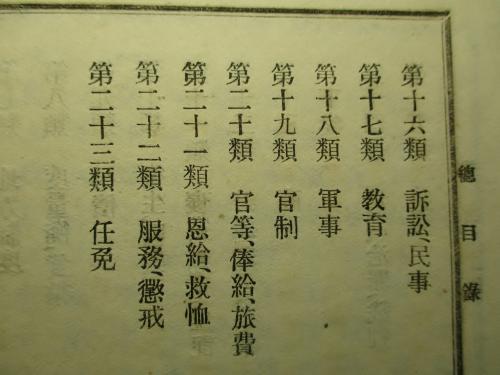 總目錄
第十六類 訴訟、民事
第十七類 教育
第十八類 軍事
第十九類 官制
第二十類 官等、俸給、旅費
第二十一類 恩給、救恤
第二十二類 服務、懲戒
第二十三類 任免